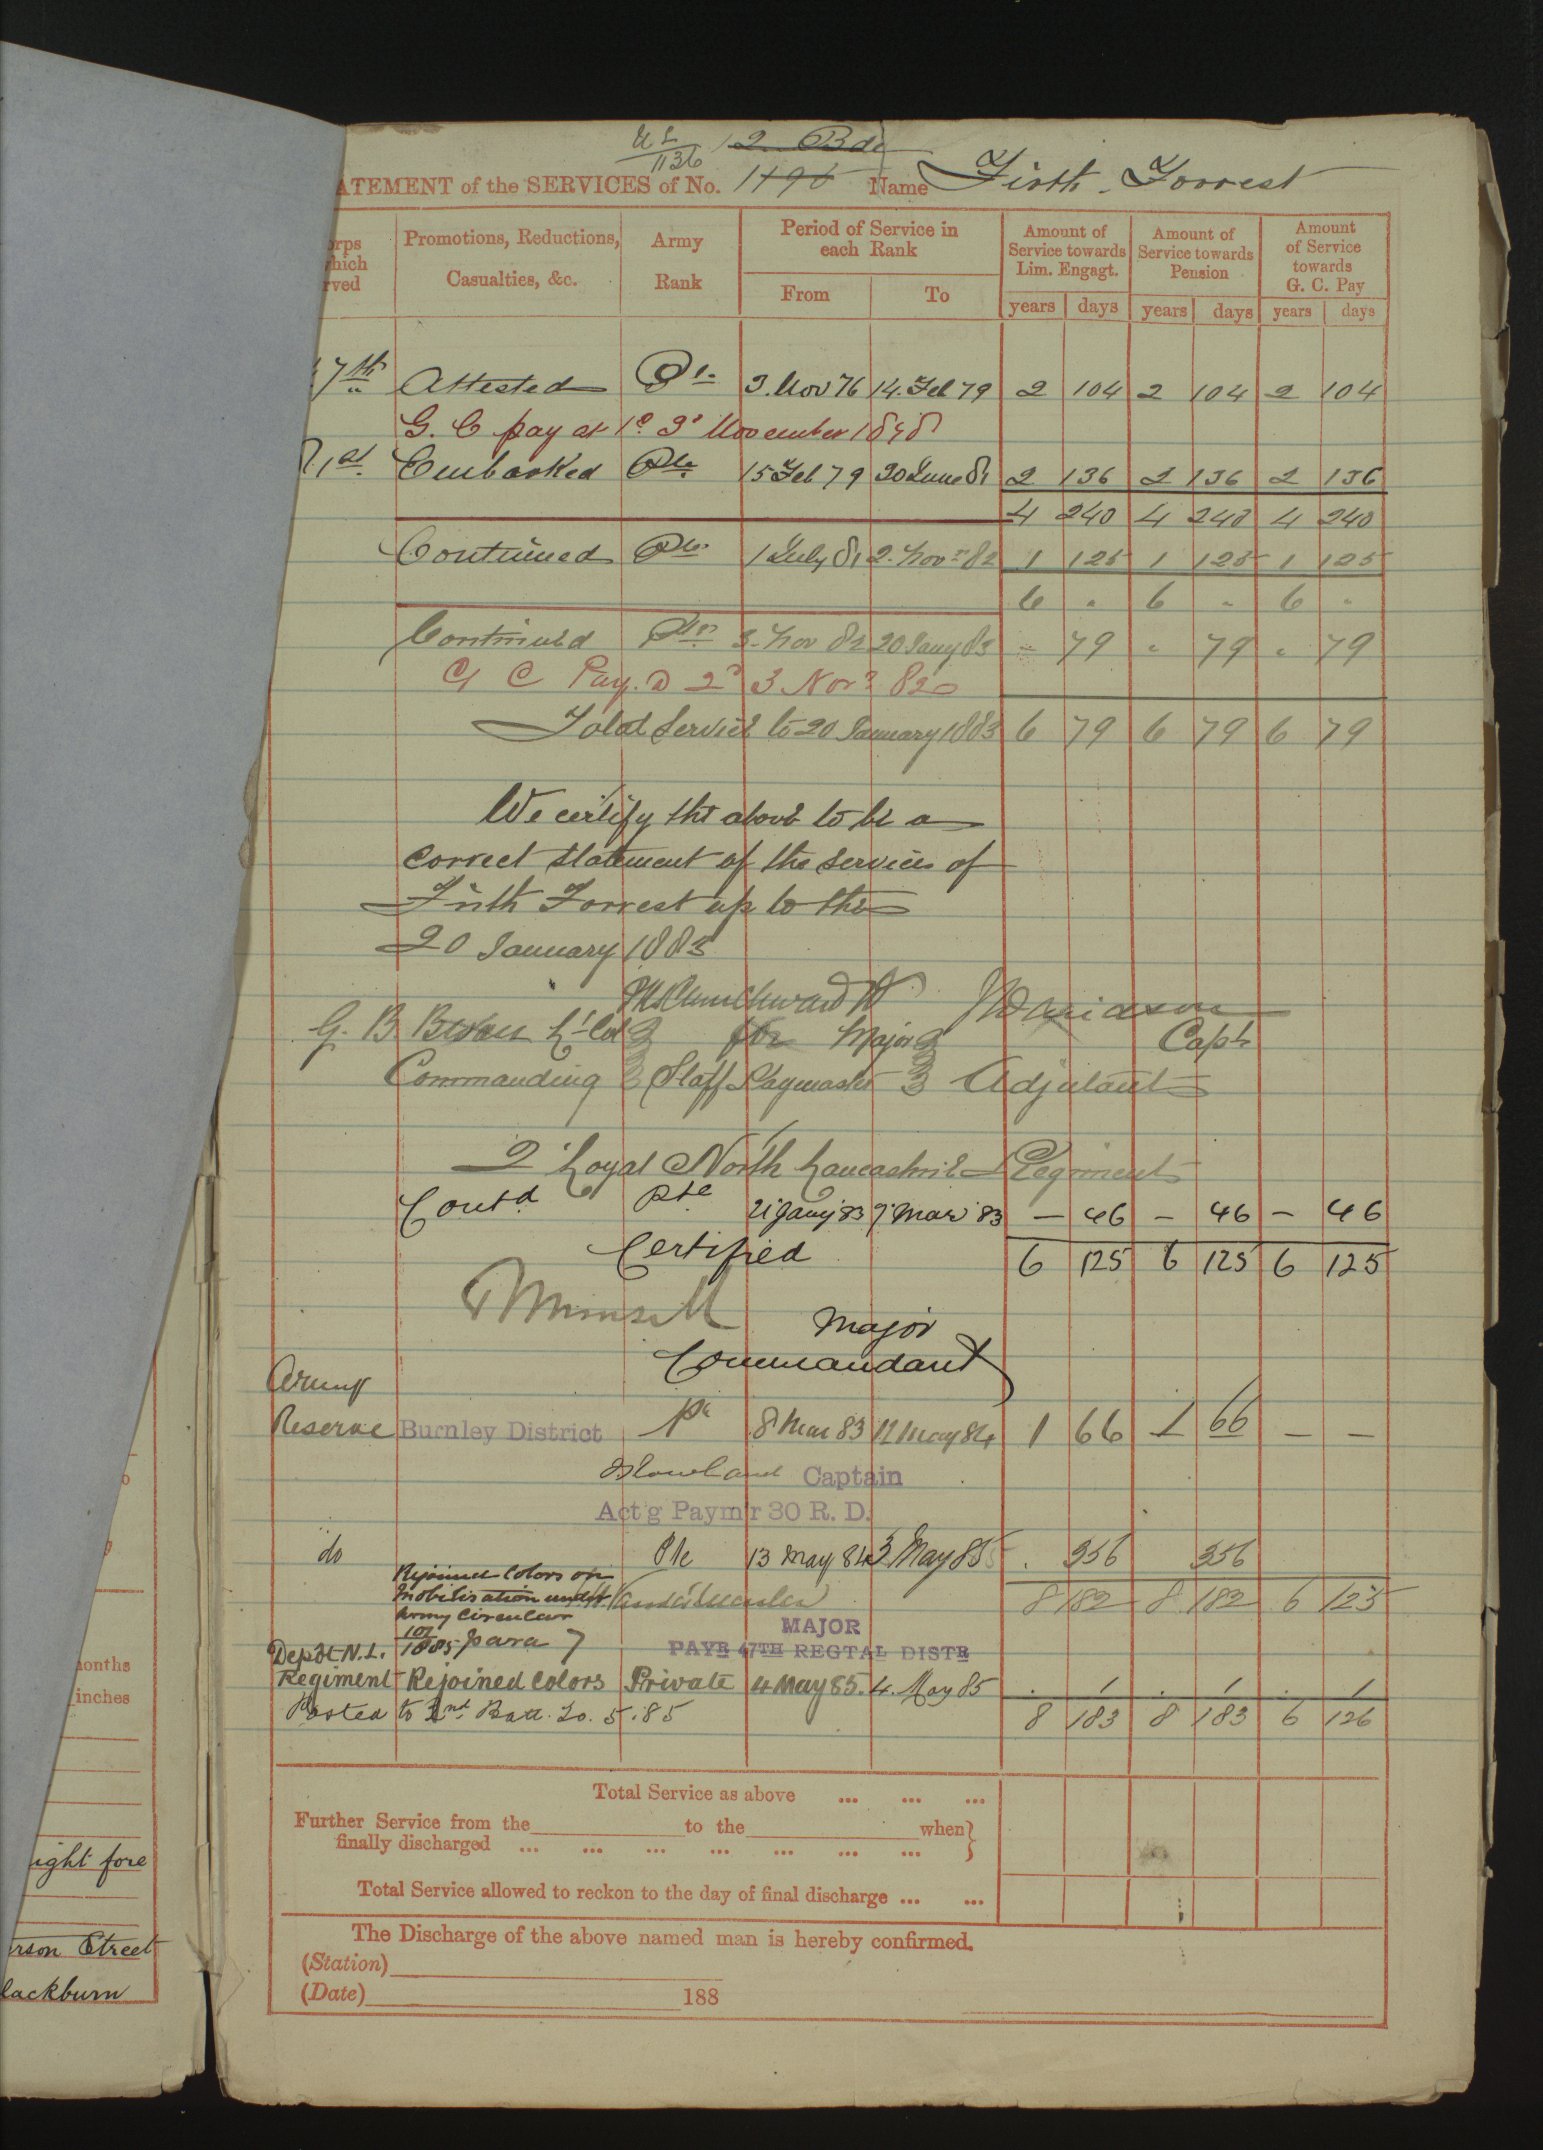 UL
1136
12 Bde
ATEMENT of the SERVICES of No. 1496 Name Firth Forrest
orps
hich
rved
Promotions, Reductions,
Casualties, &c.
Army
Rank
Period of Service in
each Rank
From To
Amount of
Service towards
Lim. Engagt.
years days
Amount of
Service towards
Pension
years days
Amount
of Service
towards
G. C. Pay
years days
7th Attested Pte 3. Nov 76 14. Feb 79 2 104 2 104 2 104
G. C pay at 1d 3d November 1878
1st Embarked Pte 15 Feb 79 30 June 81 2 136 2 136 2 136
4 240 4 240 4 240
Continued Pte 1 July 81 2. Novr 82 1 125 1 125 1 125
6 " 6 " 6 "
Continued Pte 3. Nov 82 20 Jany 83 - 79 " 79 " 79
G C Pay. @ 2d 3 Novr 82
Total Service to 20 January 1883 6 79 6 79 6 79
We certify the above to be a
correct statement of the services of
Firth Forrest up to the
20 January 1883
G. B. Lt Col for Major Capt
Commanding Staff Paymaster Adjutant
2 Loyal North Lancashire Regiment
Contd Pte 21 Jany 83 7 Mar 83 — 46 — 46 — 46
Certified 6 125 6 125 6 125
Major
Commandant
Army
Reserve Burnley District Pte 8 Mar 83 12 May 84 1 66 1 66 — —
Captain
Act'g Paym'r 30 R. D.
do Pte 13 May 84 3 May 85 . 356 356
Rejoined Colors on
Mobilisation under 8 182 8 182 6 125
Army Circular
107
1885 para 7
MAJOR
PAYR 47TH REGTAL DISTR
Depôt N. L.
Regiment Rejoined Colors Private 4 May 85. 4. May 85 . 1 . 1 . 1
Posted to 2nd Batt. 20. 5. 85 8 183 8 183 6 126
Total Service as above ... ... ...
Further Service from the to the when
finally discharged ... ... ... ... ... ... ...
Total Service allowed to reckon to the day of final discharge ... ...
The Discharge of the above named man is hereby confirmed.
(Station)
(Date) 188
onths
inches
ight fore
rson Street
lackburn